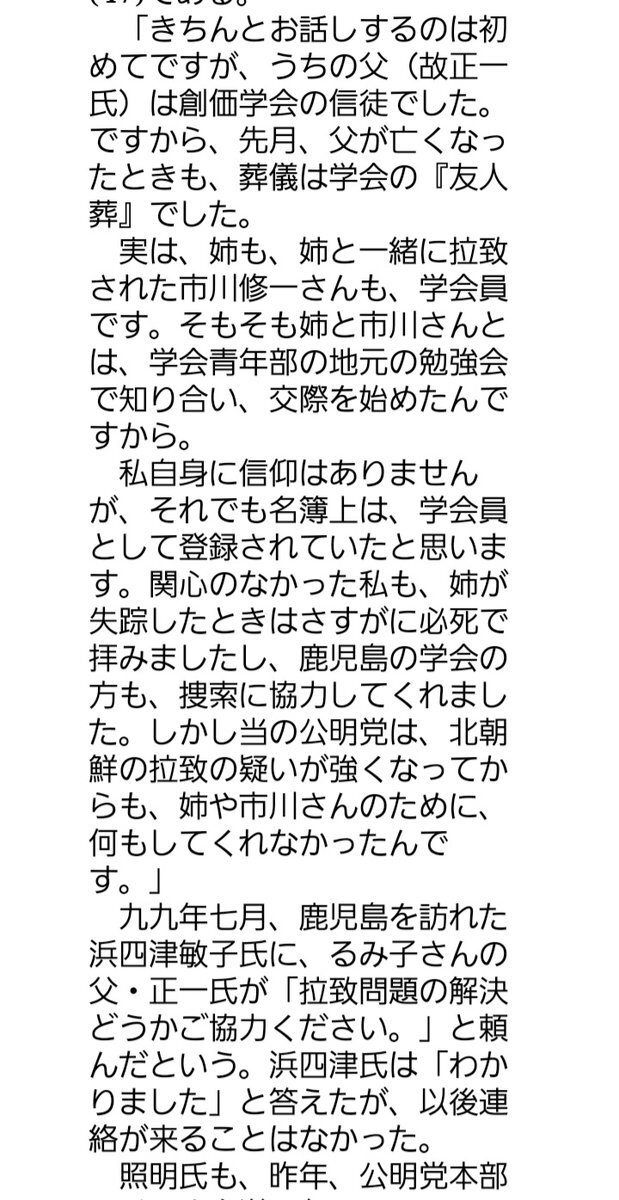 (47)である。
　「きちんとお話しするのは初
めてですが、うちの父（故正一
氏）は創価学会の信徒でした。
ですから、先月、父が亡くなっ
たときも、葬儀は学会の『友人
葬』でした。
　実は、姉も、姉と一緒に拉致
された市川修一さんも、学会員
です。そもそも姉と市川さんと
は、学会青年部の地元の勉強会
で知り合い、交際を始めたんで
すから。
　私自身に信仰はありません
が、それでも名簿上は、学会員
として登録されていたと思いま
す。関心のなかった私も、姉が
失踪したときはさすがに必死で
拝みましたし、鹿児島の学会の
方も、捜索に協力してくれまし
た。しかし当の公明党は、北朝
鮮の拉致の疑いが強くなってか
らも、姉や市川さんのために、
何もしてくれなかったんで
す。」
　九九年七月、鹿児島を訪れた
浜四津敏子氏に、るみ子さんの
父・正一氏が「拉致問題の解決
どうかご協力ください。」と頼
んだという。浜四津氏は「わか
りました」と答えたが、以後連
絡が来ることはなかった。
　照明氏も、昨年、公明党本部